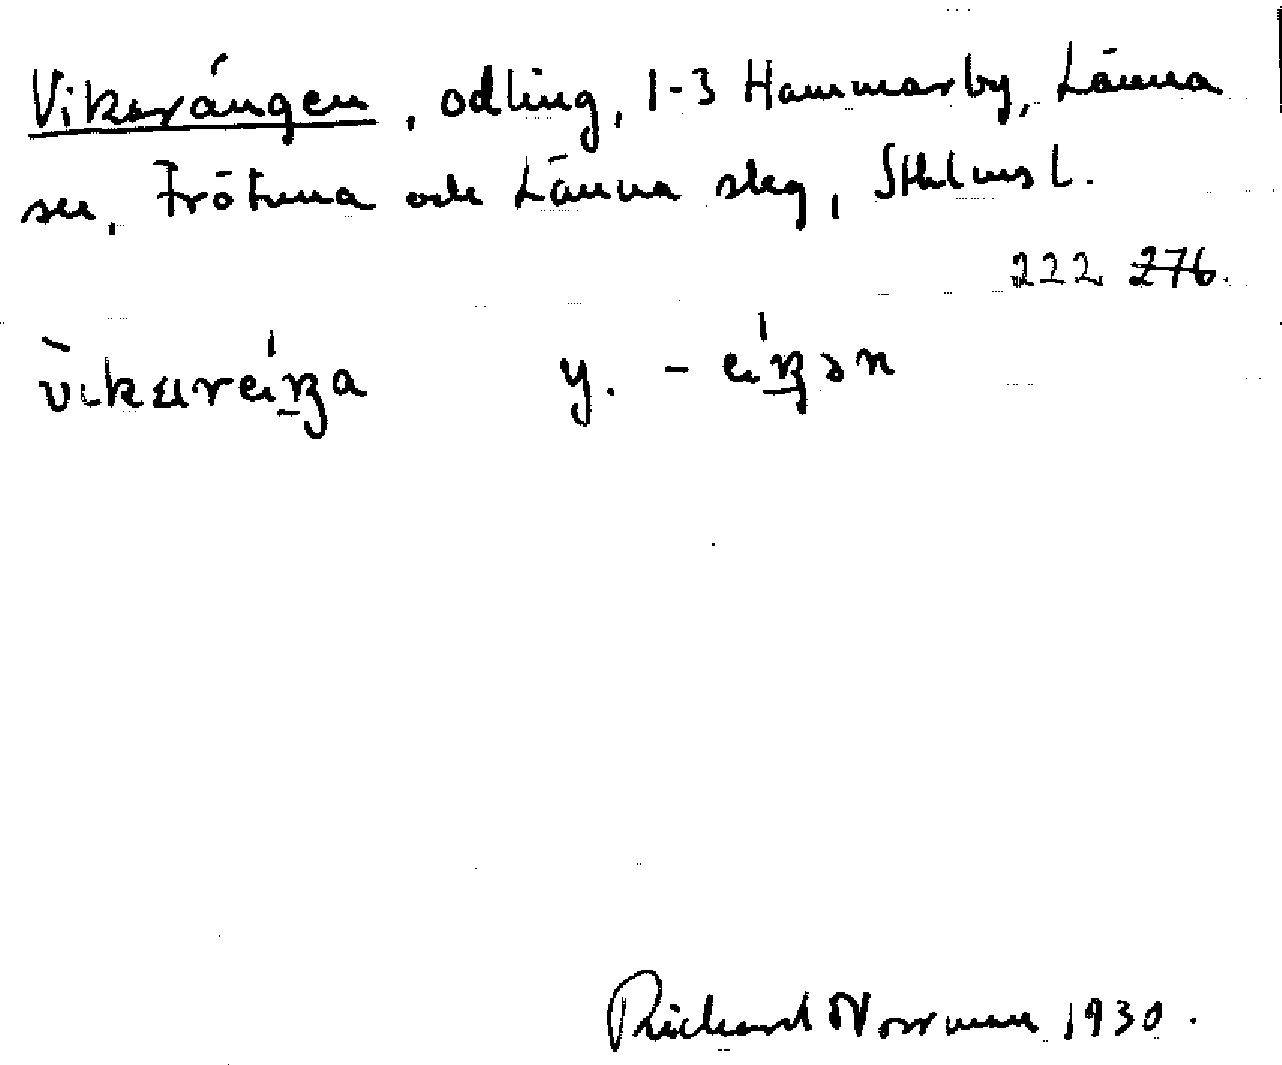 Vikarängen, odling, 1-3 Hammarby, Länna
sn, Frötuna och Länna skg, Sthlms l.
222 276.
y.
Richard Norrman 1930.